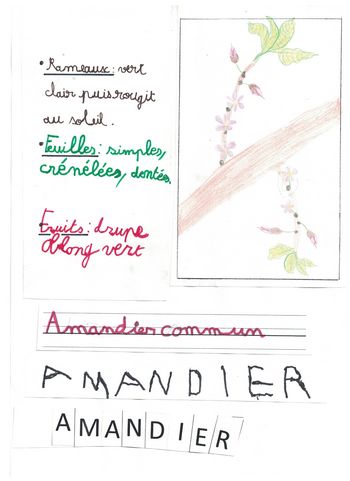 • Rameaux : vert
clair puis rougit
au soleil.
• Feuilles : simples,
crénélées, dontés.
Fruits : drupe
oblong vert
Amandier commun
AMANDIER
AMANDIER